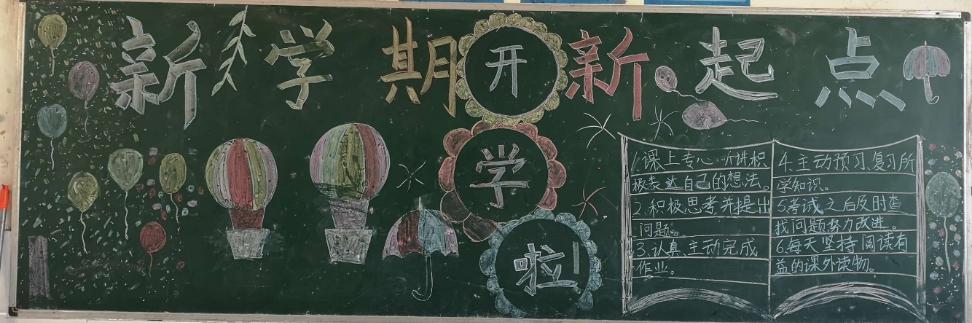 新学期 新起点
开
学
啦
1.课上专心听讲积
极表达自己的想法。
2.积极思考并提出
问题。
3.认真主动完成
作业。
4.主动预习复习所
学知识。
5.考试之后及时查
找问题努力改进。
6.每天坚持阅读有
益的课外读物。